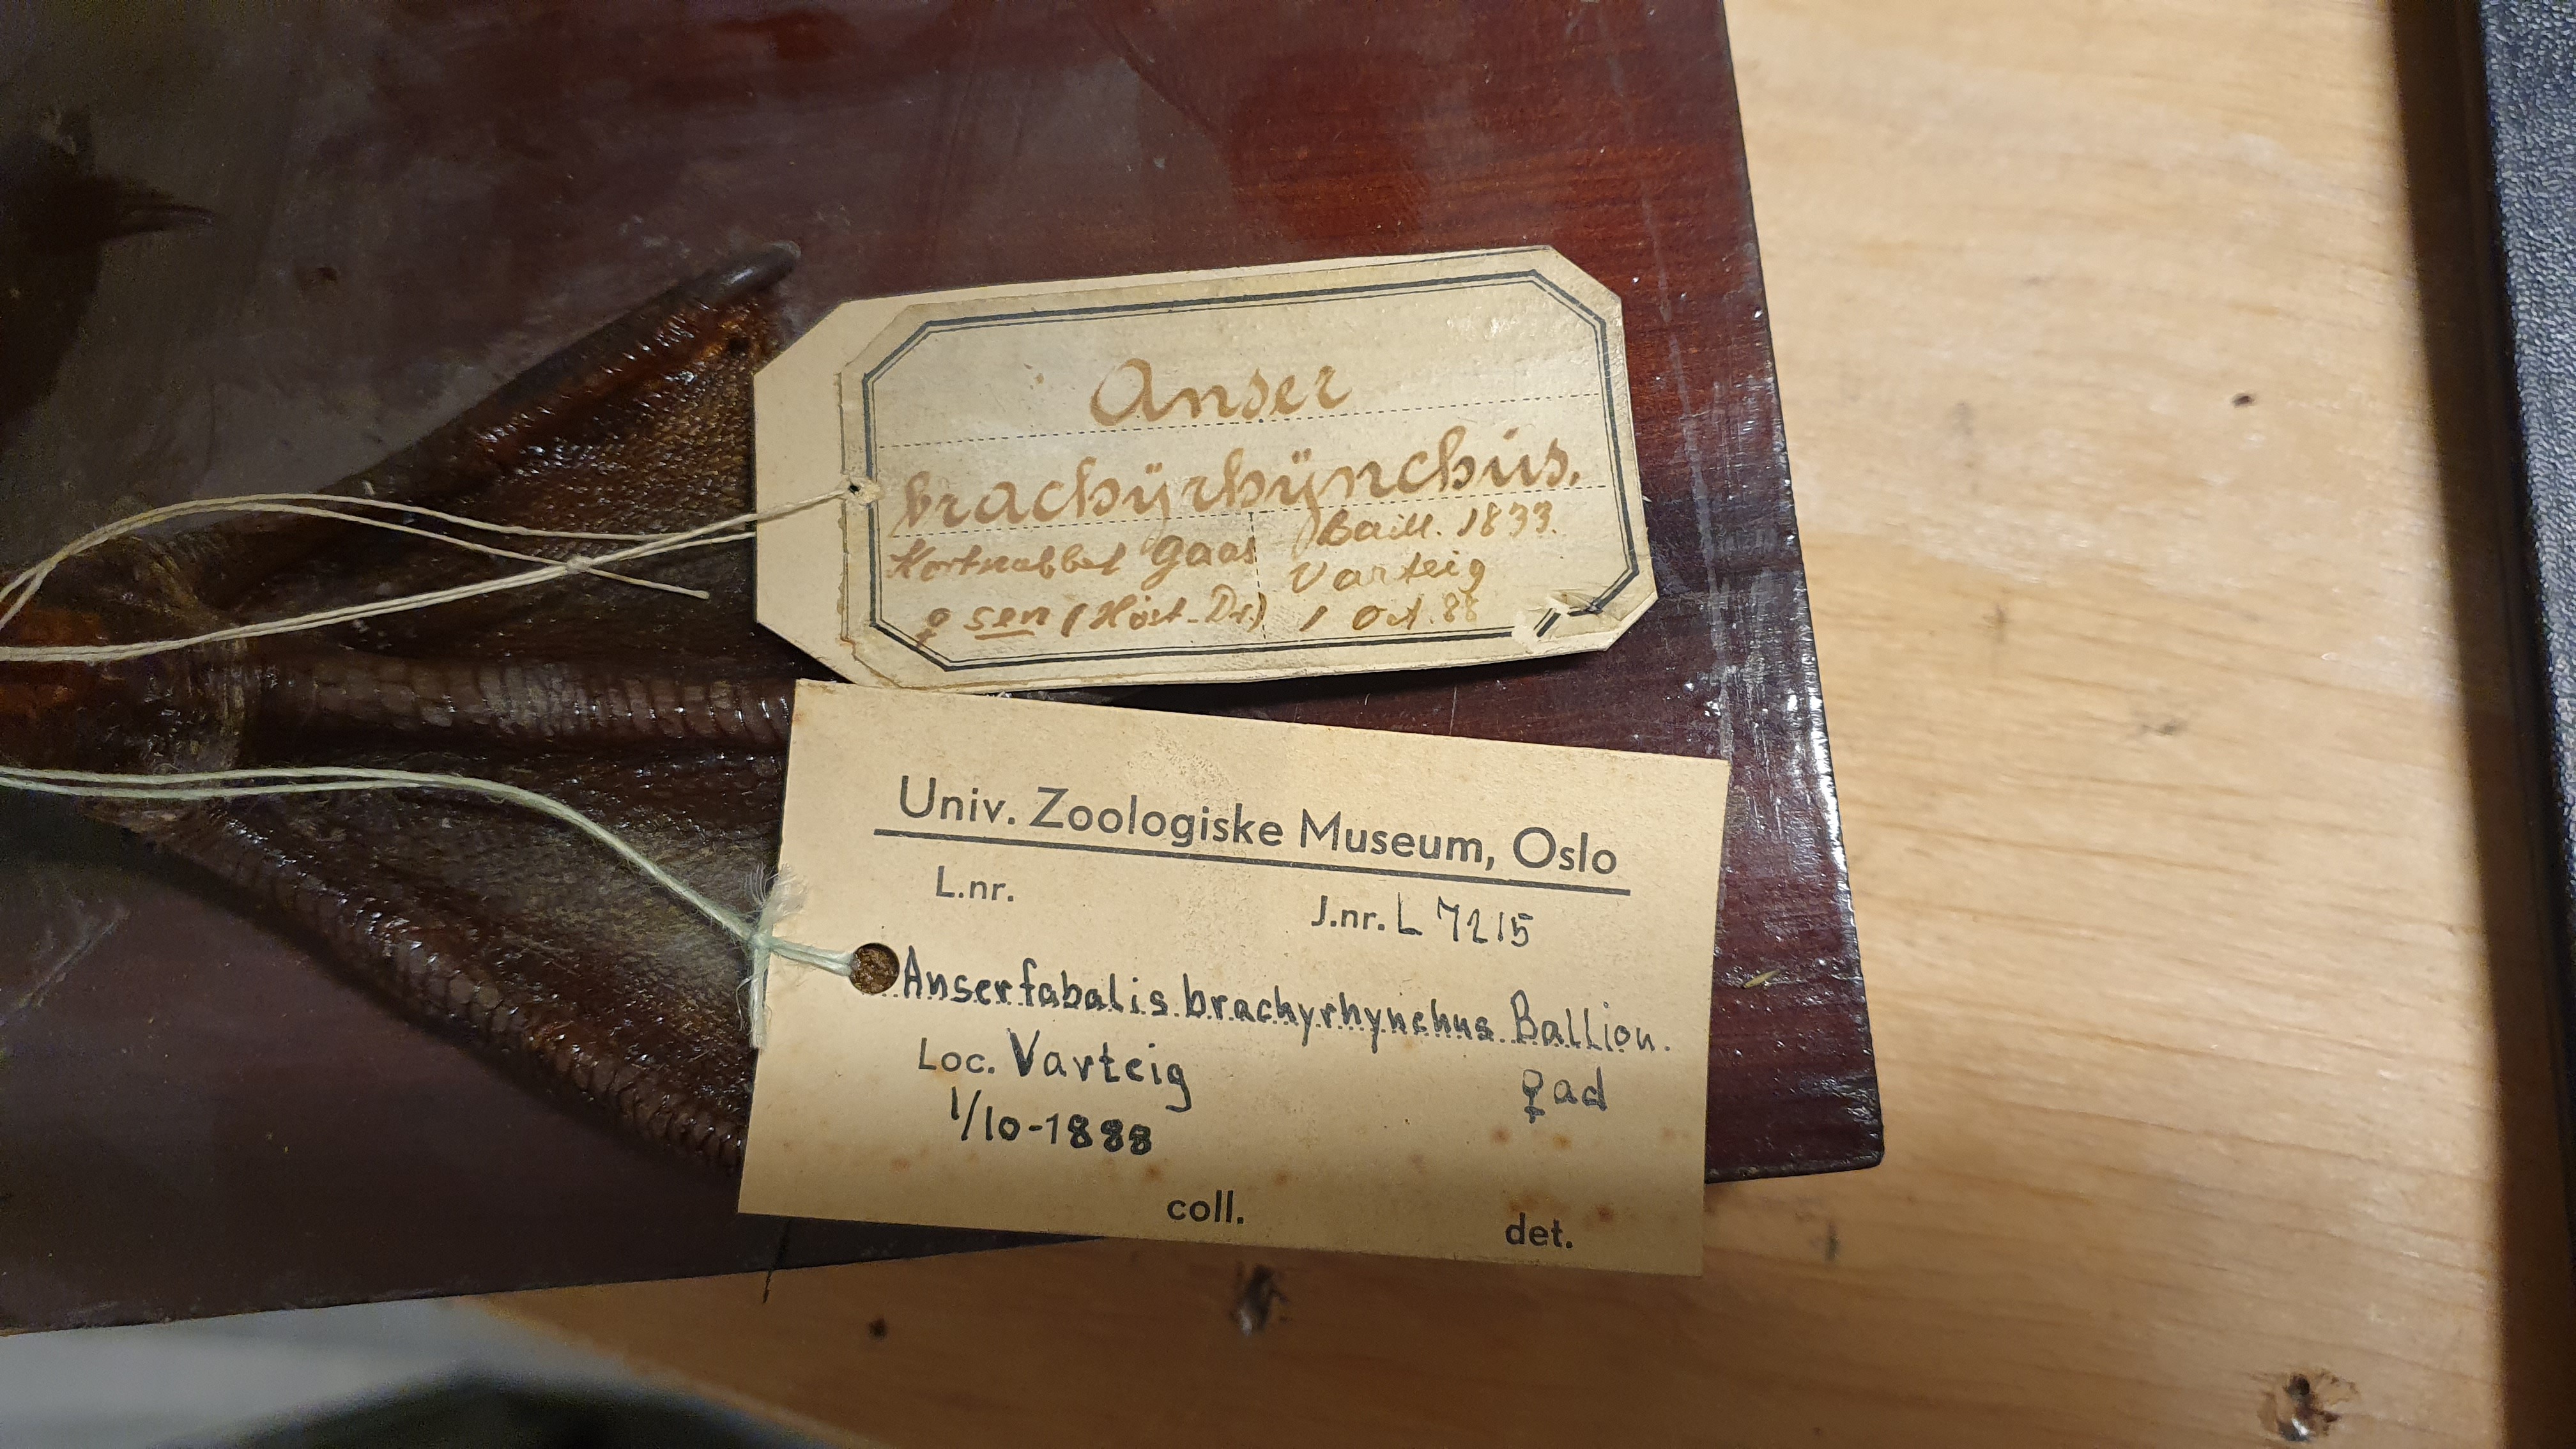 Anser
brachÿrhÿnchus.
Kortnabbet Gaas Baill. 1833.
Varteig
♀ sen (Høst-Dr.) 1 Oct. 88
Univ. Zoologiske Museum, Oslo
L.nr. J.nr. L 7215
Anser fabalis brachyrhynchus Ballion.
Loc. Varteig ♀ ad
1/10-1888
coll. det.